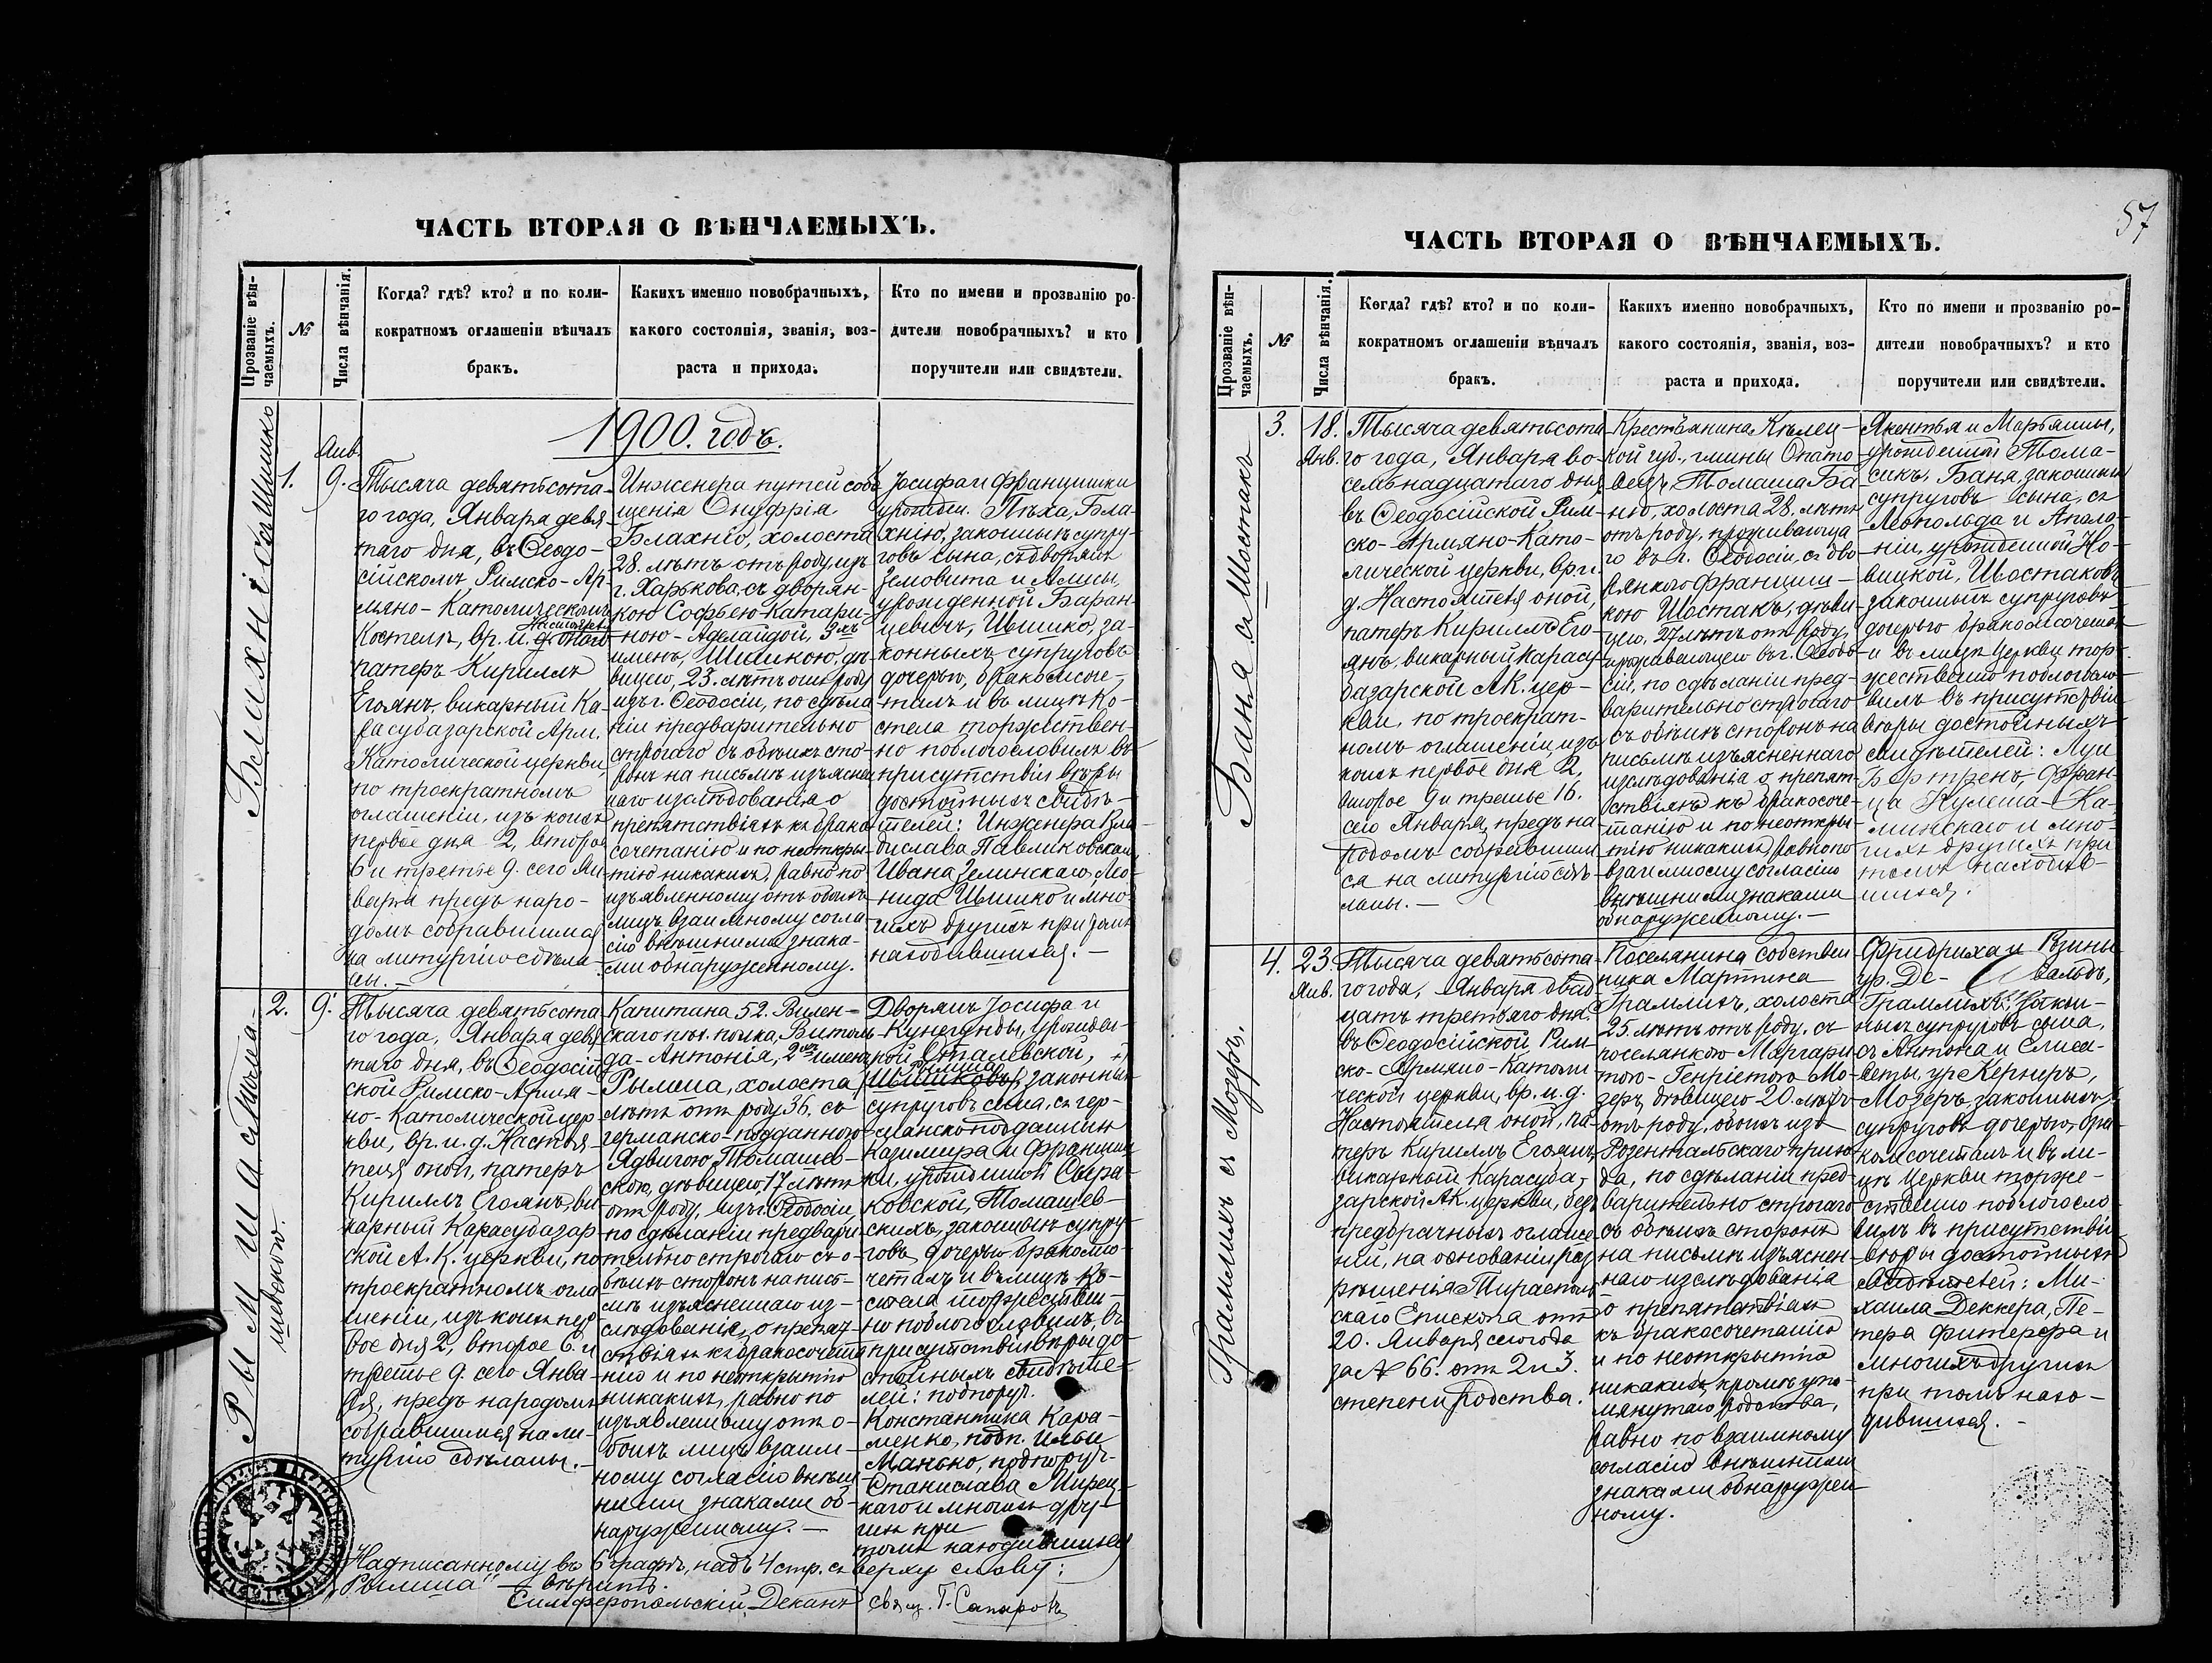 ЧАСТЬ ВТОРАЯ О ВѢНЧАЕМЫХЪ.
Прозваніе вѣн-
чаемыхъ.
№
Числа вѣнчанія.
Когда? гдѣ? кто? и по коли-
кократномъ оглашеніи вѣнчалъ
бракъ.
Какихъ именно новобрачныхъ,
какого состоянія, званія, воз-
раста и прихода.
Кто по имени и прозванію ро-
дители новобрачныхъ? и кто
поручители или свидѣтели.
1900. годъ.
1.
Янв.
9.
Тысяча девятьсота-
го года, Января девя-
таго дня, въ Ѳеодо-
сійскомъ Римско-Ар-
мяно-Католическомъ
Костелѣ, вр. и. д.
патеръ Кириллъ
Егоянъ, викарный Ка-
расубазарской Арм.
Католической церкви,
по троекратномъ
оглашеніи, изъ коихъ
первое дня 2, второе
6 и третье 9. сего Ян-
варя предъ наро-
домъ собравшимся
на литургію сдѣла-
ны.—
Инженера путей сооб
щенія Онуфрія
Блахніо, холоста
28. лѣтъ отъ роду, изъ
г. Харькова, съ дворян-
кою Софьею-Катари-
ною-Аделаидой, 3хъ
именъ, Шишкою, дѣ-
вицею, 23. лѣтъ отъ роду
изъ г. Ѳеодосіи, по сдѣла
ніи предварительно
строгаго съ обѣихъ сто-
ронъ на письмѣ изъяснен
наго изслѣдованія о
препятствіяхъ къ брако
сочетанію и по неоткры-
тію никакихъ, равно по
изъявленному отъ обоихъ
лицъ взаимному согла-
сію внѣшними знака-
ми обнаруженному.
Іосифа и Францишки
урожден. Пѣха, Бла-
хніо, законныхъ супру-
говъ сына, съ дворянъ
Земовита и Алисы,
урожденной Баран-
цевичъ, Шышко, за-
конныхъ супруговъ
дочерью, бракомъ соче-
талъ и въ лицѣ Ко-
стела торжествен-
но поблагословилъ въ
присутствіи вѣры
достойныхъ свидѣ-
телей: Инженера Вла
дислава Павликовскаго,
Ивана Зелинскаго, Ле-
нида Шышко и мно-
гихъ другихъ при томъ
находившихся.—
2.
9.
Тысяча девятьсота
го года, Января девя
таго дня, въ Ѳеодосій
ской Римско-Армя-
но-Католической цер
кви, вр. и. д. Настоя-
теля оной, патеръ
Кириллъ Егоянъ, ви
карный Карасубазар
ской А. К. церкви, по
троекратномъ огла
шеніи, изъ коихъ пер
вое дня 2, второе 6. и
третье 9. сего Янва
ря, предъ народомъ
собравшимся на ли-
тургію сдѣланы.—
Капитана 52. Вилен-
скаго пѣх. полка, Витоль
да-Антонія, 2хъ именъ
Рымша, холоста
лѣтъ отъ роду 36, съ
германско-подданною
Ядвигою Томашев-
скою, дѣвицею, 17 лѣтъ
отъ роду, изъ г. Ѳеодосіи
по сдѣланіи предвари
тельно строгаго съ о-
бѣихъ сторонъ на пись-
мѣ изъясненнаго из-
слѣдованія, о препят-
ствіяхъ къ бракосочета
нію и по неоткрытію
никакихъ, равно по
изъявленному отъ о-
боихъ лицъ взаим-
ному согласію внѣш
ними знаками об-
наруженному.—
Дворянъ Іосифа и
Кунегунды, урожден-
ной
Рымша
законныхъ
супруговъ сына, съ гер-
манско подданныхъ
Казимира и Францишки
ки, урожденной Свѣра-
ковской, Томашев-
скихъ, законныхъ супру-
говъ дочерью бракомъ со-
четалъ и въ лицѣ Ко-
стела торжествен-
но поблагословилъ, въ
присутствіи вѣры до-
стойныхъ свидѣте-
лей: подпоруч.
Константина Кара-
менко, подп. Ильи
Манько, подпоруч-
Станислава Мирец-
каго и многихъ дру-
гихъ при
томъ находившихся
Надписанному въ 6 графѣ, надъ 4 стр. съ верху слову:
„Рымша" — вѣрить.
Симферопольскій Деканъ свящ. Г. Сапаровъ
Блахніо съ Шишко
Рымша съ Тома-
шевскою.
57
ЧАСТЬ ВТОРАЯ О ВѢНЧАЕМЫХЪ.
Прозваніе вѣн-
чаемыхъ.
№
Числа вѣнчанія.
Когда? гдѣ? кто? и по коли-
кократномъ оглашеніи вѣнчалъ
бракъ.
Какихъ именно новобрачныхъ,
какого состоянія, званія, воз-
раста и прихода.
Кто по имени и прозванію ро-
дители новобрачныхъ? и кто
поручители или свидѣтели.
Баня съ Шостакъ
3.
18.
Янв.
Тысяча девятьсота
го года, Января во-
семьнадцатаго дня,
въ Ѳеодосійской Рим-
ско-Армяно-Като-
лической церкви, вр. и.
д. Настоятеля оной,
патеръ Кириллъ Его-
янъ, викарный Карасу-
базарской А.К. цер-
кви, по троекрат-
номъ оглашеніи, изъ
коихъ первое дня 2,
второе 9 и третье 16.
сего Января, предъ на
родомъ собравшим
ся на литургію сдѣ-
ланы.—
Крестьянина Кѣлец-
кой губ., гмины Опато
вецъ, Томаша Ба
ню, холоста 28. лѣтъ
отъ роду, проживающа
го въ г. Ѳеодосіи, съ дво
рянкою Францишк-
кою Шостакъ, дѣви-
цею, 27 лѣтъ отъ роду,
проживающею въ г. Ѳеодо
сіи, по сдѣланіи пред-
варительно строгаго
съ обѣихъ сторонъ на
письмѣ изъясненнаго
изслѣдованія о препят-
ствіяхъ къ бракосоче-
танію и по неоткры-
тію никакихъ, равно по
взаимному согласію
внѣшними знаками
обнаруженному.—
Якентья и Марьянны,
урожденной Тома-
сикъ, Баня, законныхъ
супруговъ сына, съ
Леопольда и Апало-
ніи, урожденной Но-
вицкой, Шостаковъ
законныхъ супруговъ
дочерью бракомъ сочеталъ
и въ лицѣ Церкви тор-
жественно поблагосло-
вилъ въ присутствіи
вѣры достойныхъ
свидѣтелей: Луи
Бертренъ, Фран-
ца Кулеша-Ка-
минскаго и мно-
гихъ другихъ при
томъ находив-
шихся.
Грамлихъ съ Мозеръ.
4.
23.
Янв.
Тысяча девятьсота
го года, Января двад
цать третьяго дня.
въ Ѳеодосійской Рим
ско-Армяно-Католи
ческой церкви, вр. и. д.
Настоятеля оной, па-
теръ Кириллъ Егоянъ,
викарный Карасуба-
зарской А.К. церкви, безъ
предбрачныхъ оглаше
ній, на основаніи раз
рѣшенія Тирасполь
скаго Епископа отъ
20. Января сего года
за № 66. отъ 2 и 3.
степени родства.
Поселянина собствен
ника Мартина
Грамлихъ, холоста
25 лѣтъ отъ роду, съ
поселянкою Маргари
тою-Генріетою Мо-
зеръ, дѣвицею 20. лѣтъ
отъ роду, обоихъ изъ
Розентальскаго прихо
да, по сдѣланіи пред-
варительно строгаго
съ обѣихъ сторонъ
на письмѣ изъяснен-
наго изслѣдованія
о препятствіяхъ
къ бракосочетанію
и по неоткрытію
никакихъ, кромѣ упо-
мянутаго родства,
равно по взаимному
согласію внѣшними
знаками обнаружен-
ному.
Фридриха и
ур. Де-вальдъ,
Грамлихъ, закон-
ныхъ супруговъ сына,
съ Антона и Елиса-
веты, ур Кернеръ,
Мозеръ, законныхъ
супруговъ дочерью, бра-
комъ сочеталъ и въ ли-
цѣ Церкви торже-
ственно поблагосло-
вилъ въ присутствіи
вѣры достойныхъ
свидѣтелей: Ми-
хаила Деккера, Пе-
тера Фитерера и
многихъ другихъ
при томъ нахо-
дившихся.—